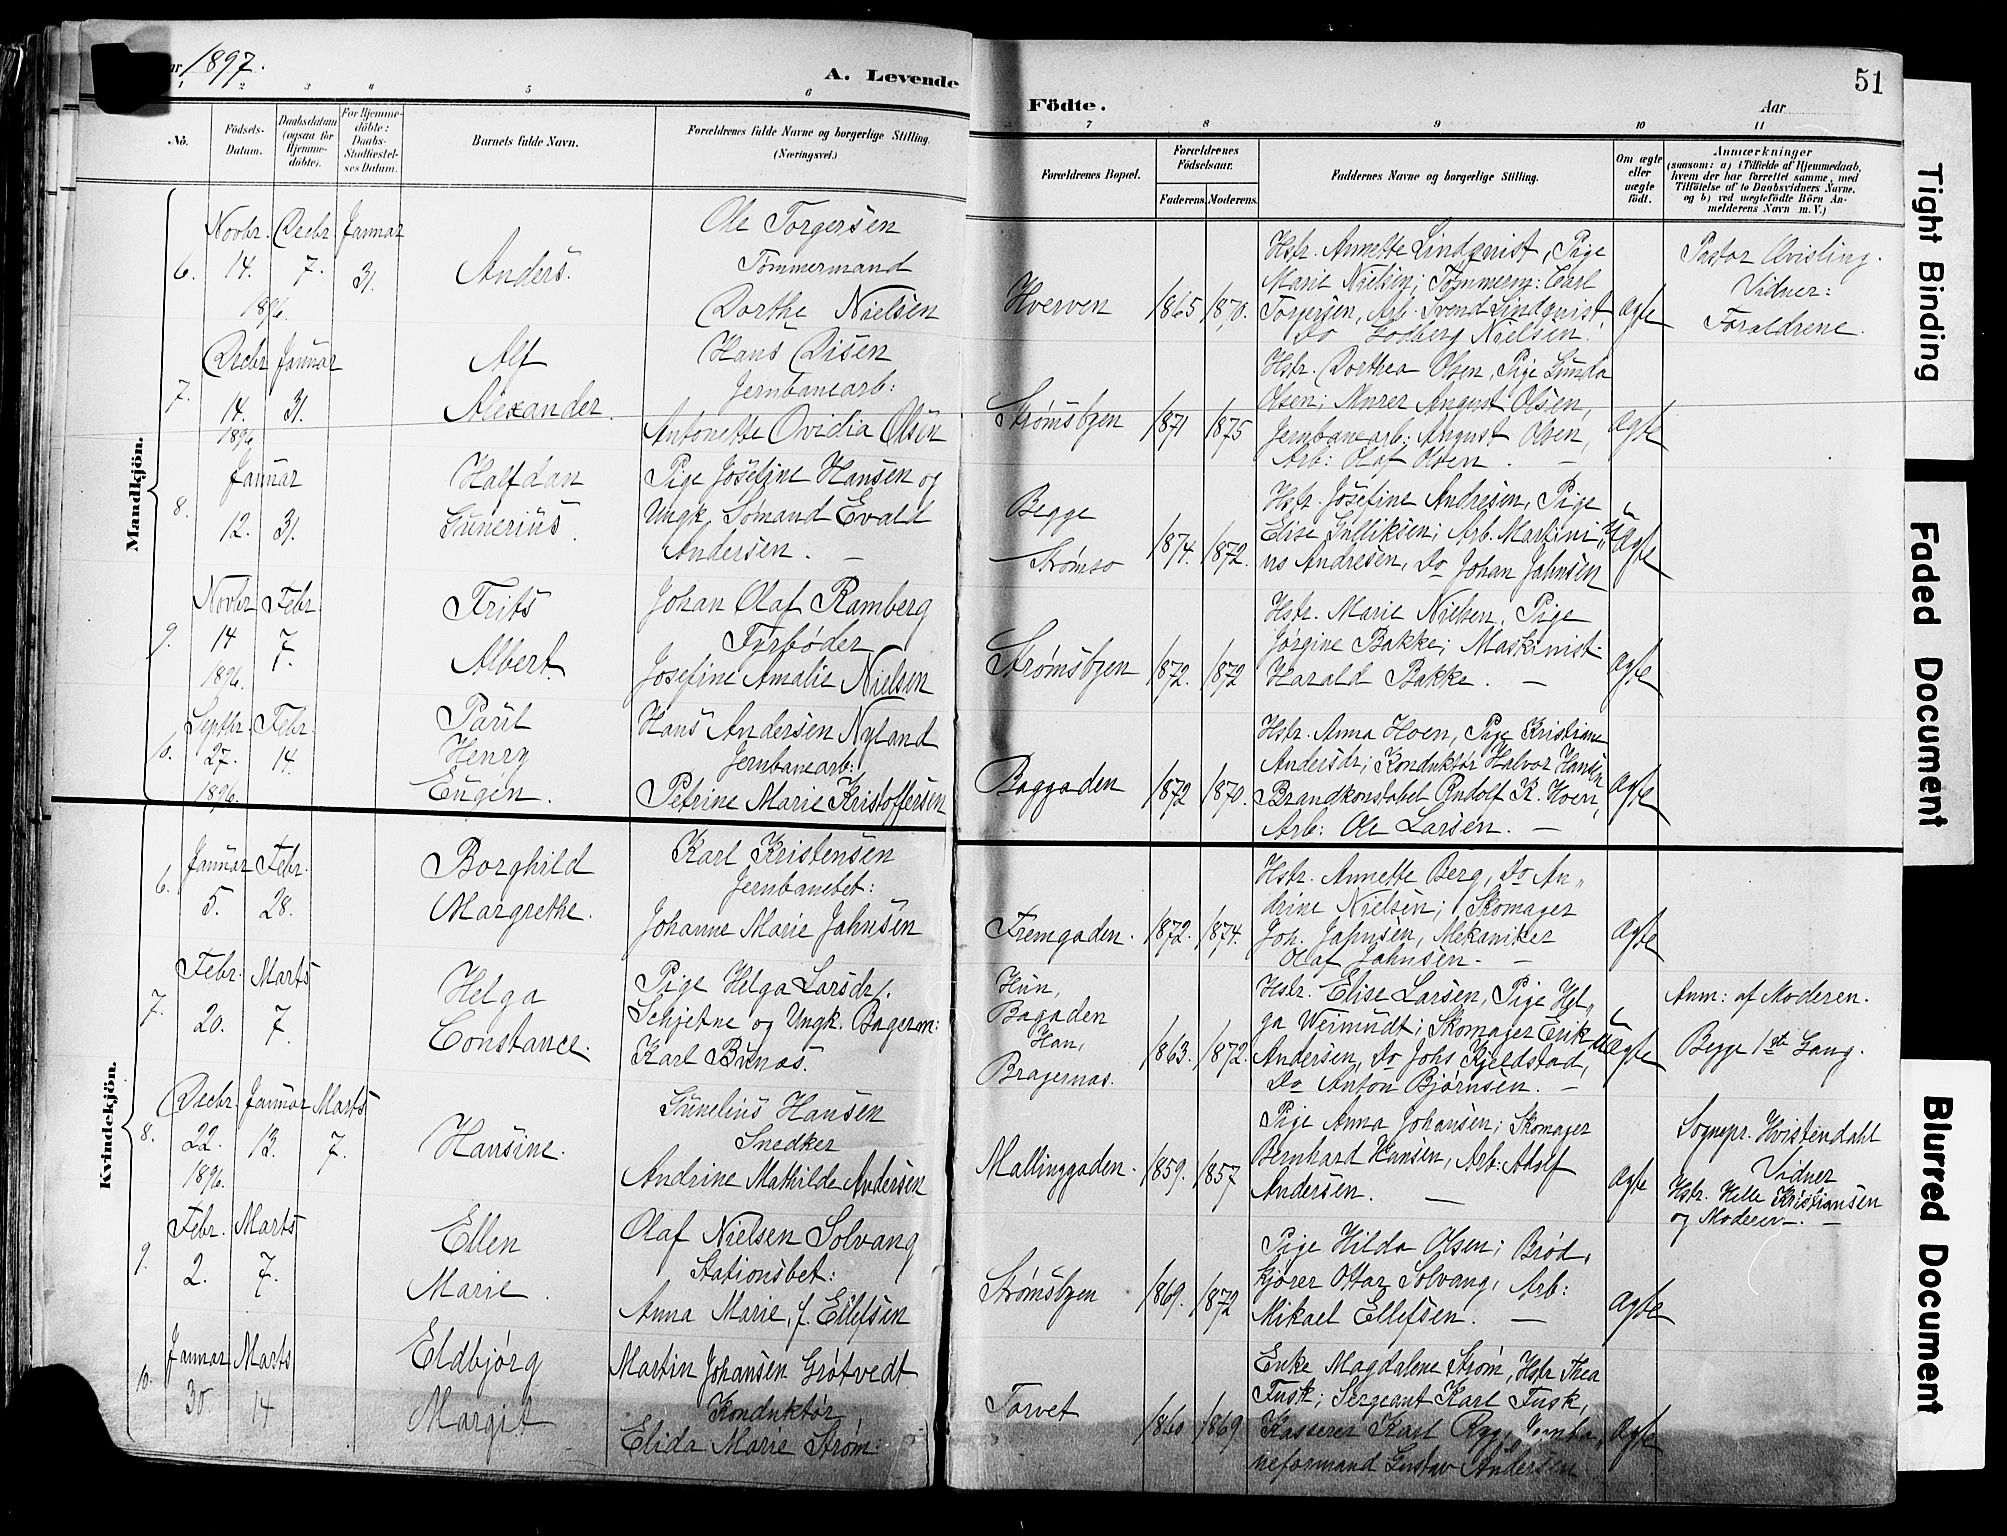 Aar 1897.
A. Levende
Födte.
Aar
51
1 2 3 4 5 6
7 8 9 10 11
No.
Födsels-Datum.
Daabsdatum (ogsaa for Hjemmedöbte).
For Hjemmedöbte: Daabs-Stadfæstelses Datum.
Barnets fulde Navn.
Forældrenes fulde Navne og borgerlige Stilling. (Næringsvei.)
Forældrenes Bopæl.
Forældrenes Födselsaar.
Faderens. Moderens.
Faddernes Navne og borgerlige Stilling.
Om ægte eller uægte födt.
Anmærkninger
(saasom: a) i Tilfælde af Hjemmedaab,
hvem der har forrettet samme, med
Tilföielse af to Daabsvidners Navne.
og b) ved uægtefödte Börn An-
melderens Navn m. V.)
Mandkjön.
6. Novbr. 14. 1896.
Decbr 7.
Januar 31.
Anders.
Ole Torgersen
Tømmermand
Dorthe Nielsen
Hverven
1865 1870.
Hstr. Annette Lindqvist, Pige
Marie Nielsen; Tømmerm: Carl
Torgersen, Arb. Svend Lindqvist,
Do Lodberg Nielsen.
ægte
Pastor Qvisling.
Vidner:
Forældrene.
7. Decbr 14. 1896
Januar 31.
Alf
Alexander.
Hans Disen
Jernbanearb:
Antonette Ovidia Olsen
Strømsbyen
1871 1875
Hstr. Dorthea Olsen, Pige Lunda
Olsen; Murer August Olsen,
Jernbanearb: August Olsen,
Arb: Olaf Olsen. —
ægte
8. Januar
12. 31.
Halfdan
Gunerius.
Pige Josefine Hansen og
Ungk. Sømand Evald
Andersen. —
Begge
Strømsø
1874. 1872.
Hstr. Josefine Andresen, Pige
Elise Gulliksen; Arb. Martini-
us Andresen, Do Johan Jahnsen
Uægte
9. Novbr 14 1896.
Febr. 7.
Frits
Albert.
Johan Olaf Ramberg
Fyrbøder
Josefine Amalie Nielsen
Strømsbyen
1872. 1872
Hstr. Marie Nielsen, Pige
Jørgine Bakke; Maskinist
Harald Bakke. —
ægte
10. Septbr. 27. 1896.
Febr. 14.
Paul
Henry
Eugen.
Hans Andersen Nyland
Jernbanearb:
Petrine Marie Kristoffersen
Baggaden
1872 1870.
Hstr. Anna Hoen, Pige Kristiane
Andersdr; Konduktør Halvor Hansen
Brandkonstabel Rudolf K. Hoen,
Arb: Ole Larsen. —
ægte
Kvindekjön.
6. Januar 5.
Febr. 28.
Borghild
Margrethe.
Karl Kristensen
Jernbanebet:
Johanne Marie Jahnsen
Fremgaden.
1872. 1874.
Hstr. Annette Berg, Do An-
drine Nielsen; Skomager
Joh. Jahnsen, Mekaniker
Olaf Jahnsen. —
ægte
7. Febr. 20.
Marts 7.
Helga
Constance.
Pige Helga Larsdr.
Schjetne og Ungk. Bagerm:
Karl Bunæs.
Hun,
Bagaden
Han,
Bragernæs.
1863. 1872.
Hstr. Elise Larsen, Pige Hel-
ga Weimudt; Skomager Erik
Andersen, Do Johs Kjeldstad,
Do Anton Bjørnsen. —
Uægte
Anm: af Moderen.
Begge 1ste Gang.
8. Decbr. 22. 1896.
Januar 13.
Marts 7.
Hansine.
Gunelius Hansen
Snedker
Andrine Mathilde Andersen
Mallinggaden.
1859. 1857
Pige Anna Johansen; Skomager
Bernhard Hansen, Arb: Adolf
Andersen. —
ægte
Sognepr. Hvistendahl
Vidner
Hstr. Helle Kristiansen
og Moderen. —
9. Febr. 2.
Marts 7.
Ellen
Marie.
Olaf Nielsen Solvang
Stationsbet:
Anna Marie, f. Ellefsen
Strømsbyen
1869. 1872
Pige Hilda Olsen; Brød-
kjører Ottar Solvang, Arb:
Mikael Ellefsen. —
ægte
10. Januar 30
Marts 14
Eldbjørg
Margit
Martin Johansen Grøtvedt
Konduktør
Elida Marie Strøm
Torvet
1860 1869
Enke Magdalene Strøm, Hstr Thea
Fusk; Sergeant Karl Fusk,
Kasserer Karl Ryg, Jernba-
neformand Gustav Andersen
ægte
Tight Binding
Faded Document
Blurred Document